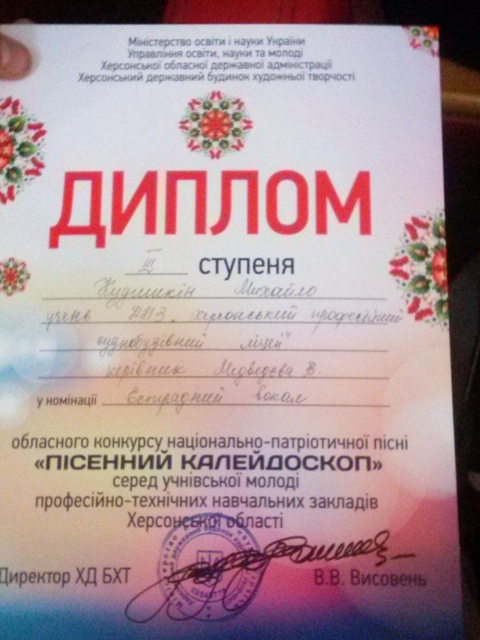 Міністерство освіти і науки України
Управління освіти, науки та молоді
Херсонської обласної державної адміністрації
Херсонський державний будинок художньої творчості
ДИПЛОМ
III ступеня
Михайло
учень ДНЗ "Херсонський професійний
суднобудівний ліцей"
керівник Медведєва В.
у номінації Естрадний вокал
обласного конкурсу національно-патріотичної пісні
«ПІСЕННИЙ КАЛЕЙДОСКОП»
серед учнівської молоді
професійно-технічних навчальних закладів
Херсонської області
Директор ХД БХТ В.В. Висовень